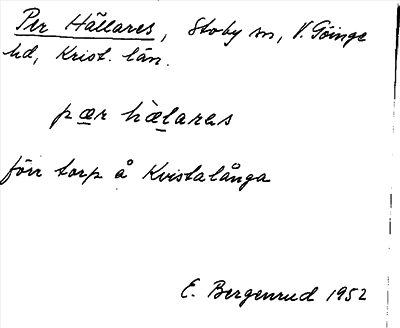 Per Hällares, Stoby sn, V. Göinge
hd, Krist. län.
pær hælaras
förr torp å Kvistalånga
E. Bergenrud 1952